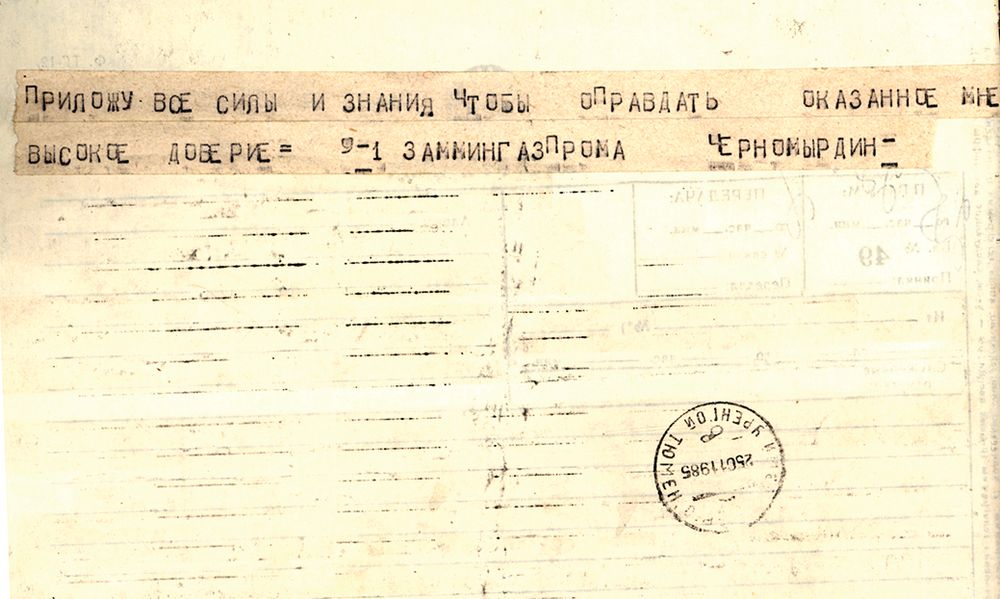 ПРИЛОЖУ ВСЕ СИЛЫ И ЗНАНИЯ ЧТОБЫ ОПРАВДАТЬ ОКАЗАННОЕ МНЕ
ВЫСОКОЕ ДОВЕРИЕ= 9-1 ЗАММИНГАЗПРОМА ЧЕРНОМЫРДИН-
ПЕРЕДАЧА:
49
УРЕНГОЙ ТЮМЕН
25011985